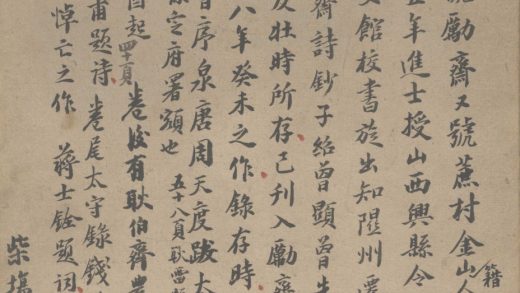 勵齋又號蔗村金山籍人
年進士授山西興縣令
館校書旋出知隰州
齋詩鈔子紹曾顯曾
壯時所存已刊入勵齋
八年癸未之作錄存時
序泉唐周天度跋大
定府署額也 五十八頁
起四十頁 卷後有耿伯齊
甫題詩卷尾太守錄錢
悼亡之作 蔣士銓題詞
柴